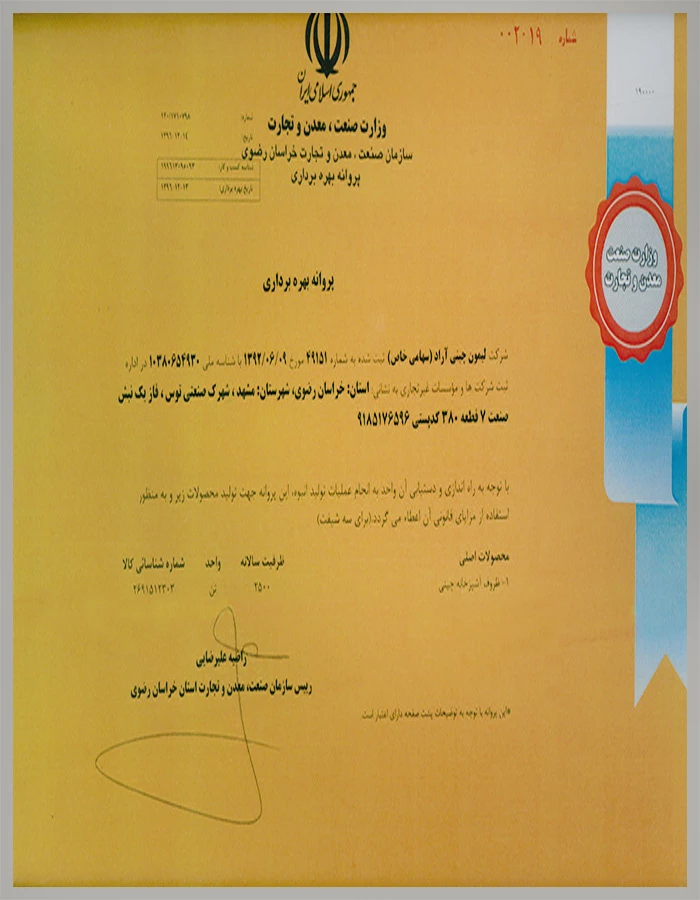 شماره ۰۰۲۰۱۹
۱۹۰۰۰۰
جمهوری اسلامی ایران
وزارت صنعت ، معدن و تجارت
سازمان صنعت ، معدن و تجارت خراسان رضوی
پروانه بهره برداری
شماره:
تاریخ: ۱۳۹۶/۱۲/۱۴
شناسه کسب و کار:
تاریخ بهره برداری: ۱۳۹۶/۱۲/۱۳
وزارت صنعت
معدن و تجارت
پروانه بهره برداری
شرکت لیمون چینی آراد (سهامی خاص) ثبت شده به شماره ۴۹۱۵۱ مورخ ۱۳۹۲/۰۶/۰۹ با شناسه ملی ۱۰۳۸۰۶۵۴۹۳۰ در اداره
ثبت شرکت ها و مؤسسات غیرتجاری به نشانی: استان: خراسان رضوی، شهرستان: مشهد ، شهرک صنعتی توس ، فاز یک نبش
صنعت ۷ قطعه ۳۸۰ کدپستی ۹۱۸۵۱۷۶۵۹۶
با توجه به راه اندازی و دستیابی آن واحد به انجام عملیات تولید انبوه، این پروانه جهت تولید محصولات زیر و به منظور
استفاده از مزایای قانونی آن اعطاء می گردد.(برای سه شیفت)
محصولات اصلی ظرفیت سالانه واحد شماره شناسائی کالا
۱- ظروف آشپزخانه چینی ۲۵۰۰ تن ۲۶۹۱۵۱۲۳۰۳
راضیه علیرضایی
رییس سازمان صنعت، معدن و تجارت استان خراسان رضوی
*این پروانه با توجه به توضیحات پشت صفحه دارای اعتبار است.